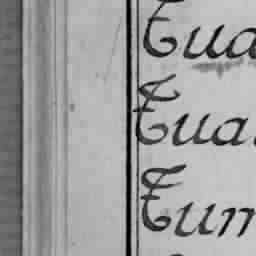 Tua
Tua
Tum